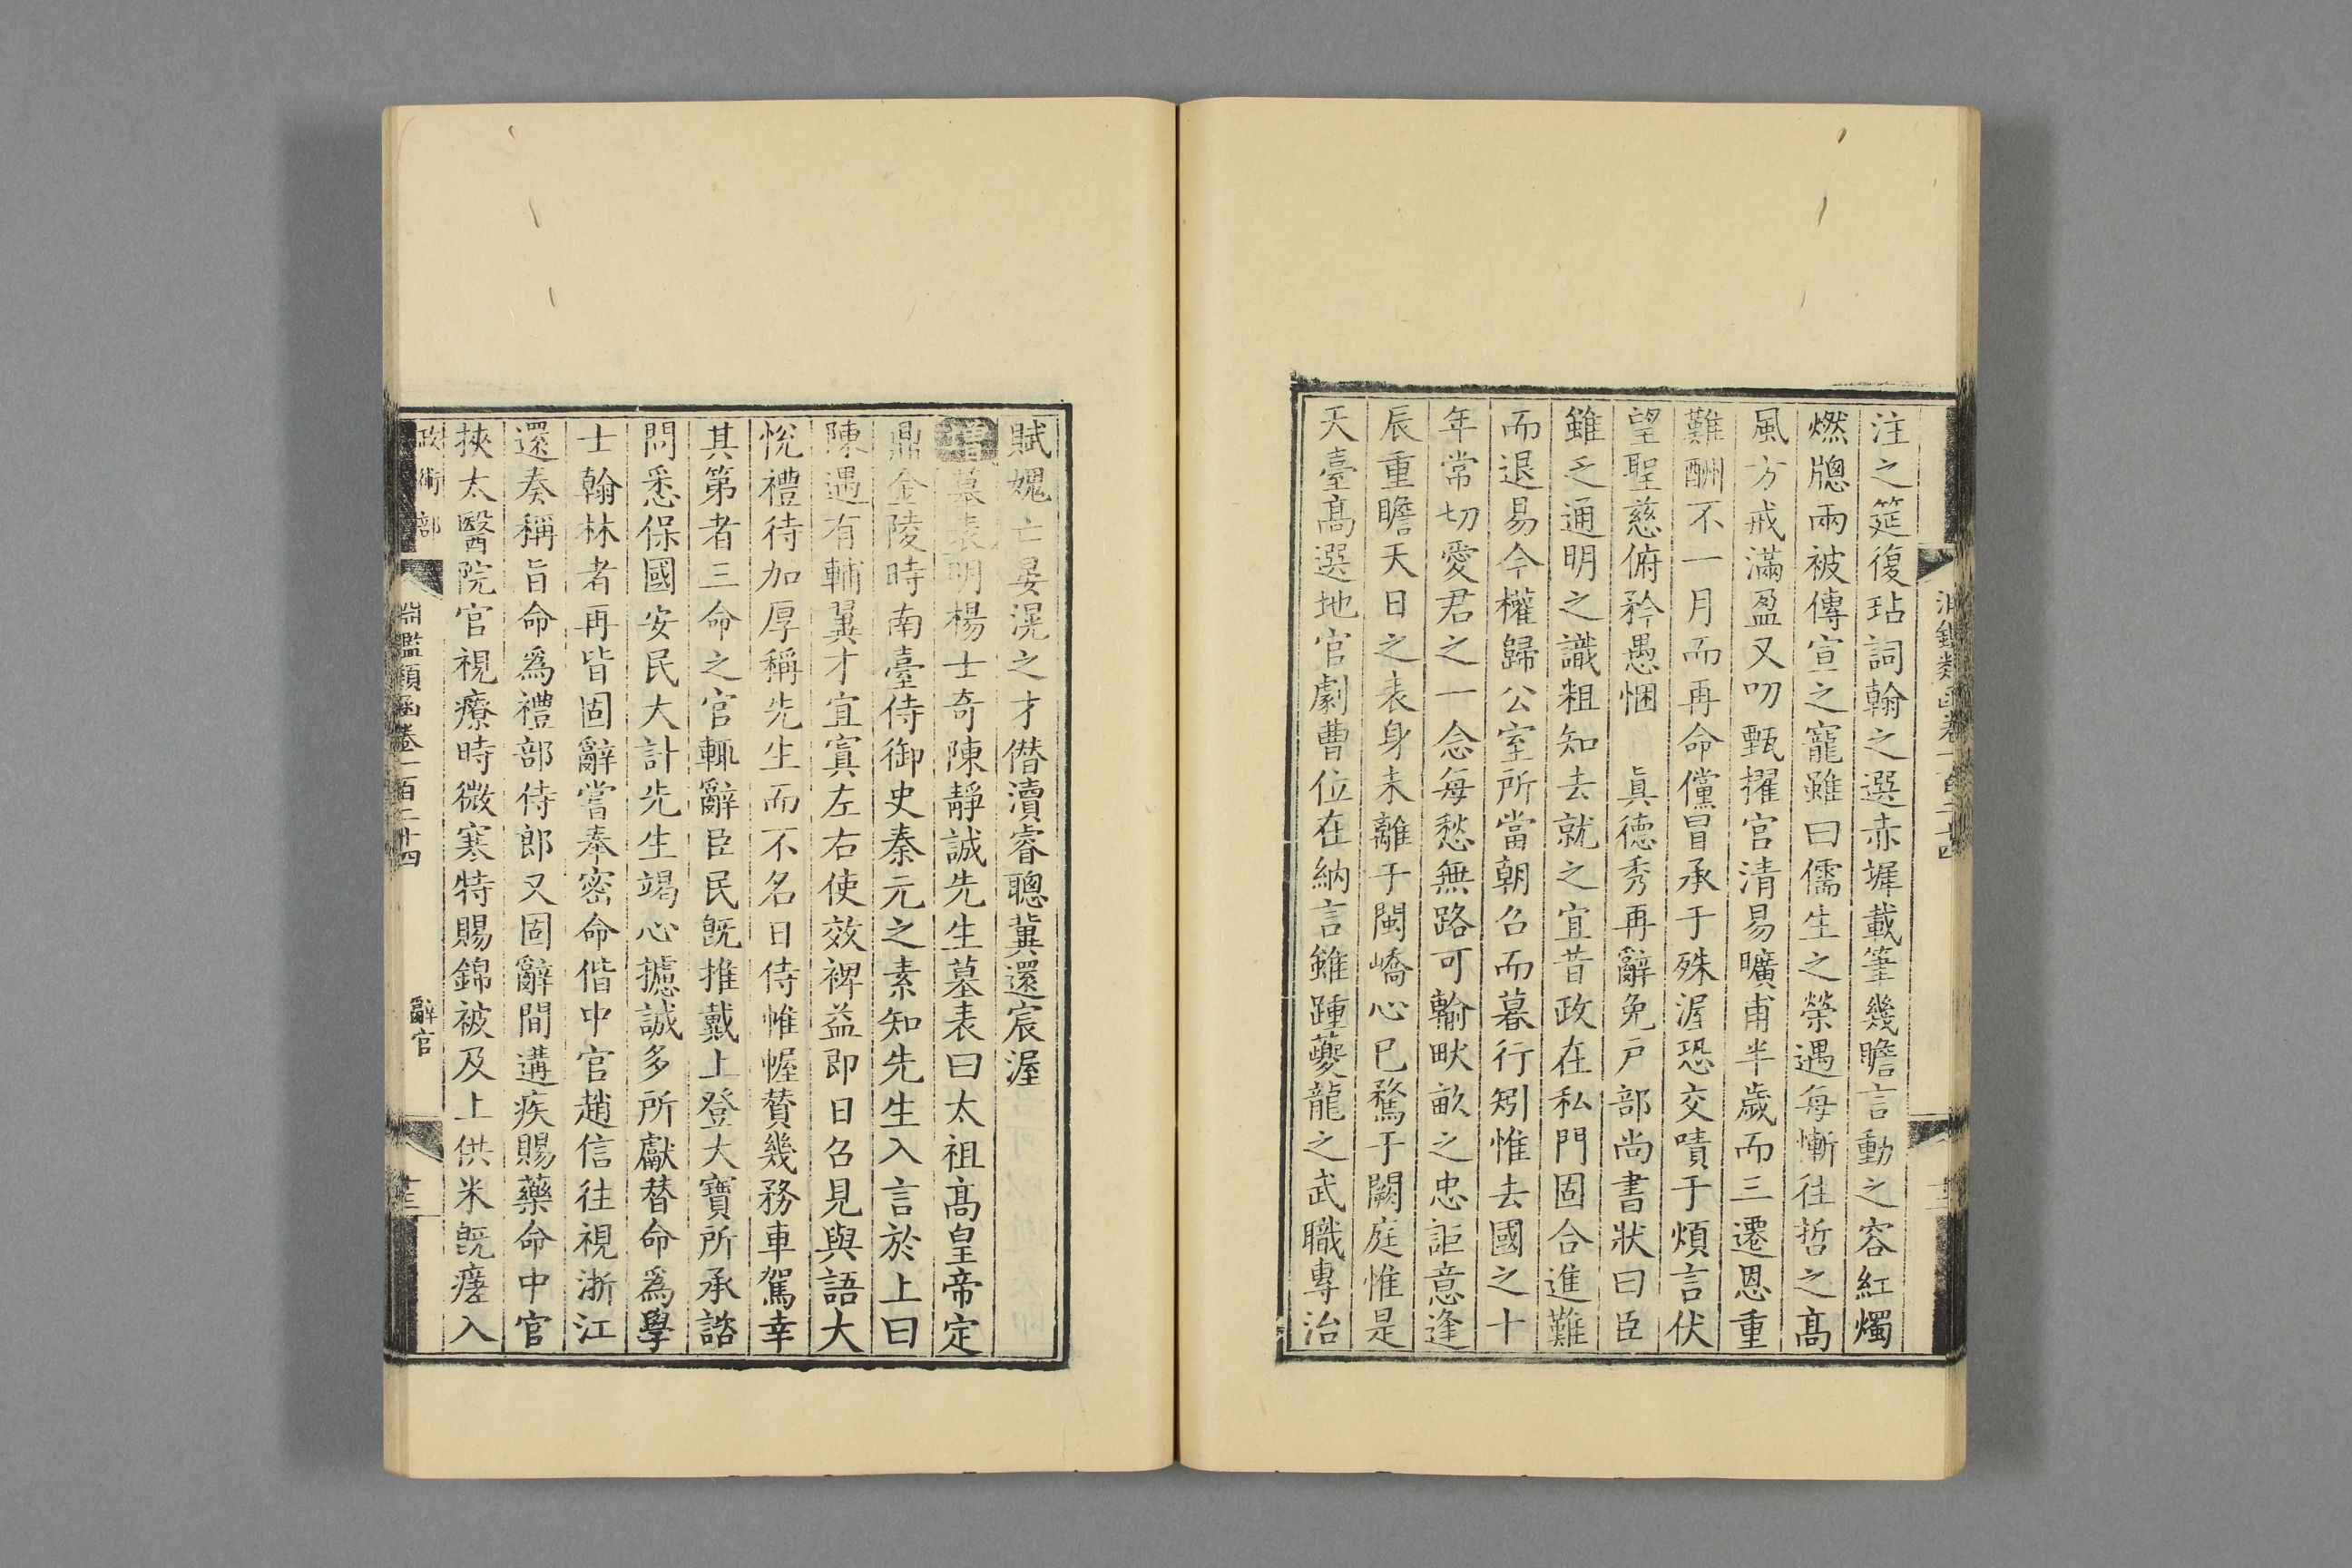 注之筵復玷詞翰之選赤墀載筆幾瞻言動之容紅燭
燃牕兩被傳宣之寵雖曰儒生之榮遇每慚往哲之髙
風方戒滿盈又叨甄擢官清易曠甫半歲而三遷恩重
難酬不一月而再命儻冒承于殊渥恐交嘖于煩言伏
望聖慈俯矜愚悃　眞德秀再辭免戸部尚書狀曰臣
雖乏通明之識粗知去就之宜昔政在私門固合進難
而退易今權歸公室所當朝召而暮行矧惟去國之十
年常切愛君之一念每愁無路可輸畎畝之忠詎意逢
辰重瞻天日之表身未離于閩嶠心已騖于闕庭惟是
天臺髙選地官劇曹位在納言雖踵夔龍之武職專治
賦媿亡晏滉之才僭瀆睿聰冀還宸渥
增墓表明楊士奇陳靜誠先生墓表曰太祖髙皇帝定
鼎金陵時南臺侍御史秦元之素知先生入言於上曰
陳遇有輔翼才宜寘左右使效裨益即日召見與語大
悅禮待加厚稱先生而不名日侍帷幄贊幾務車駕幸
其第者三命之官輒辭臣民旣推戴上登大寶所承諮
問悉保國安民大計先生竭心攄誠多所獻替命爲學
士翰林者再皆固辭嘗奉密命偕中官趙信往視浙江
還奏稱旨命爲禮部侍郎又固辭間遘疾賜藥命中官
挾太醫院官視療時微寒特賜錦被及上供米旣瘥入
政術部　淵鑑類函卷一百二十四　辭官